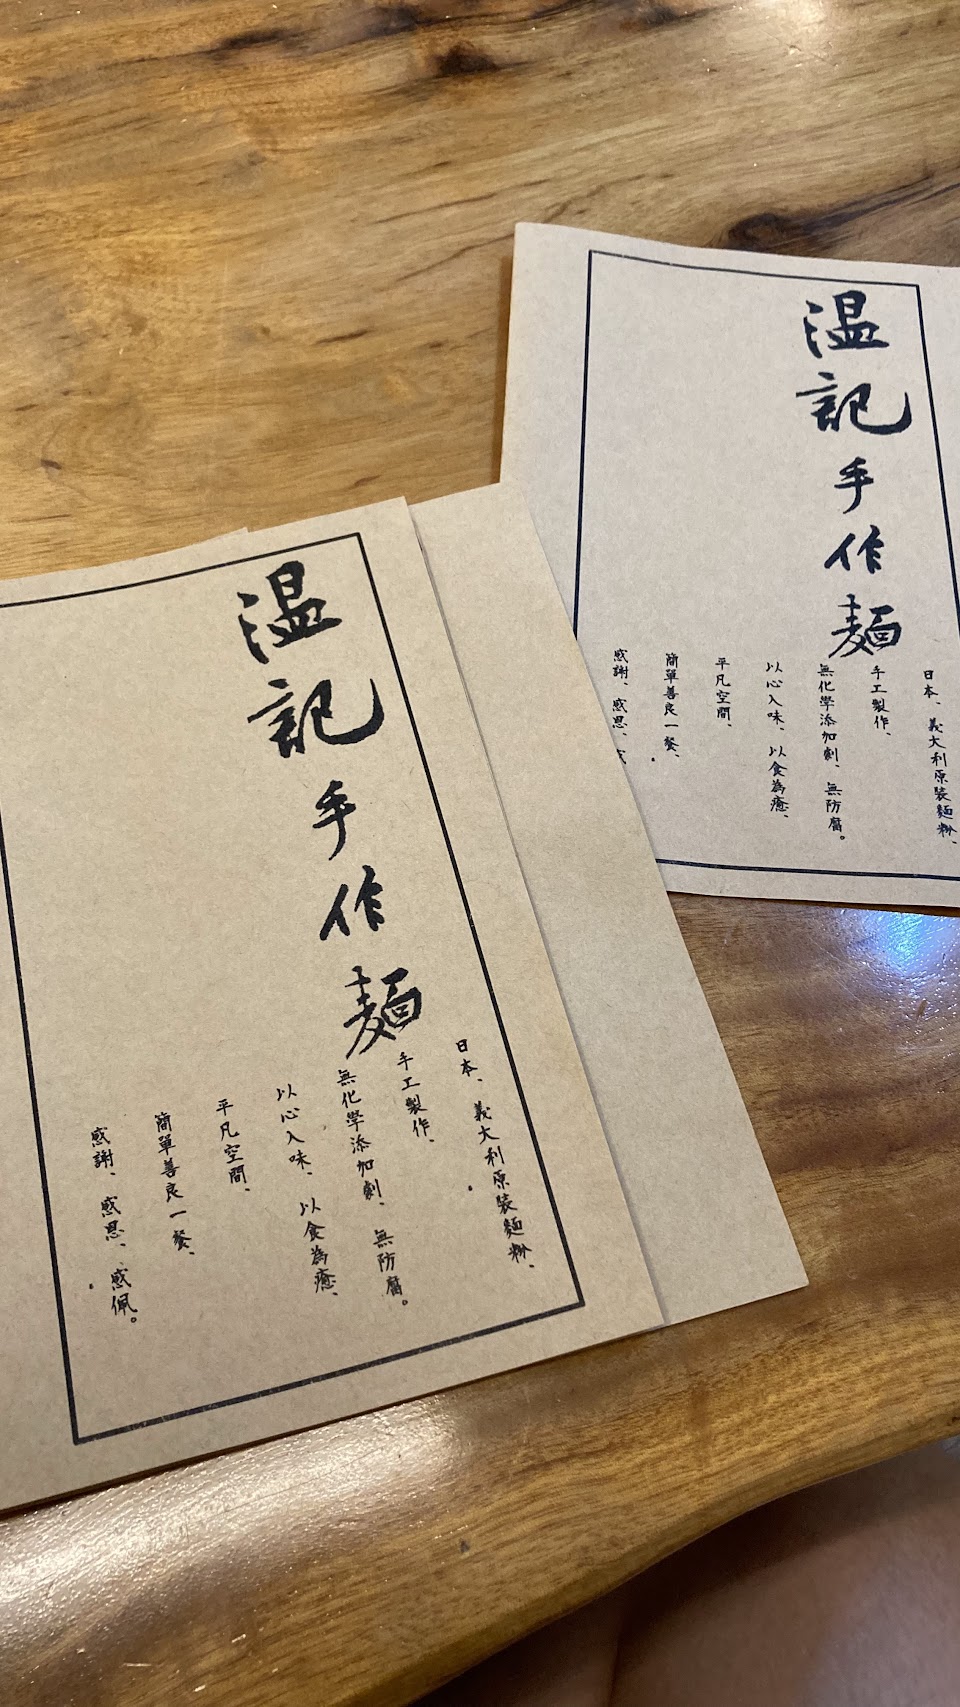 温記手作麺
日本、義大利原裝麵粉、
手工製作、
無化學添加劑、無防腐。
以心入味、以食為癒、
平凡空間、
簡單善良一餐、
感謝、感恩、感佩。
温記手作麺
日本、義大利原裝麵粉、
手工製作、
無化學添加劑、無防腐。
以心入味、以食為癒、
平凡空間、
簡單善良一餐、
感謝、感恩、